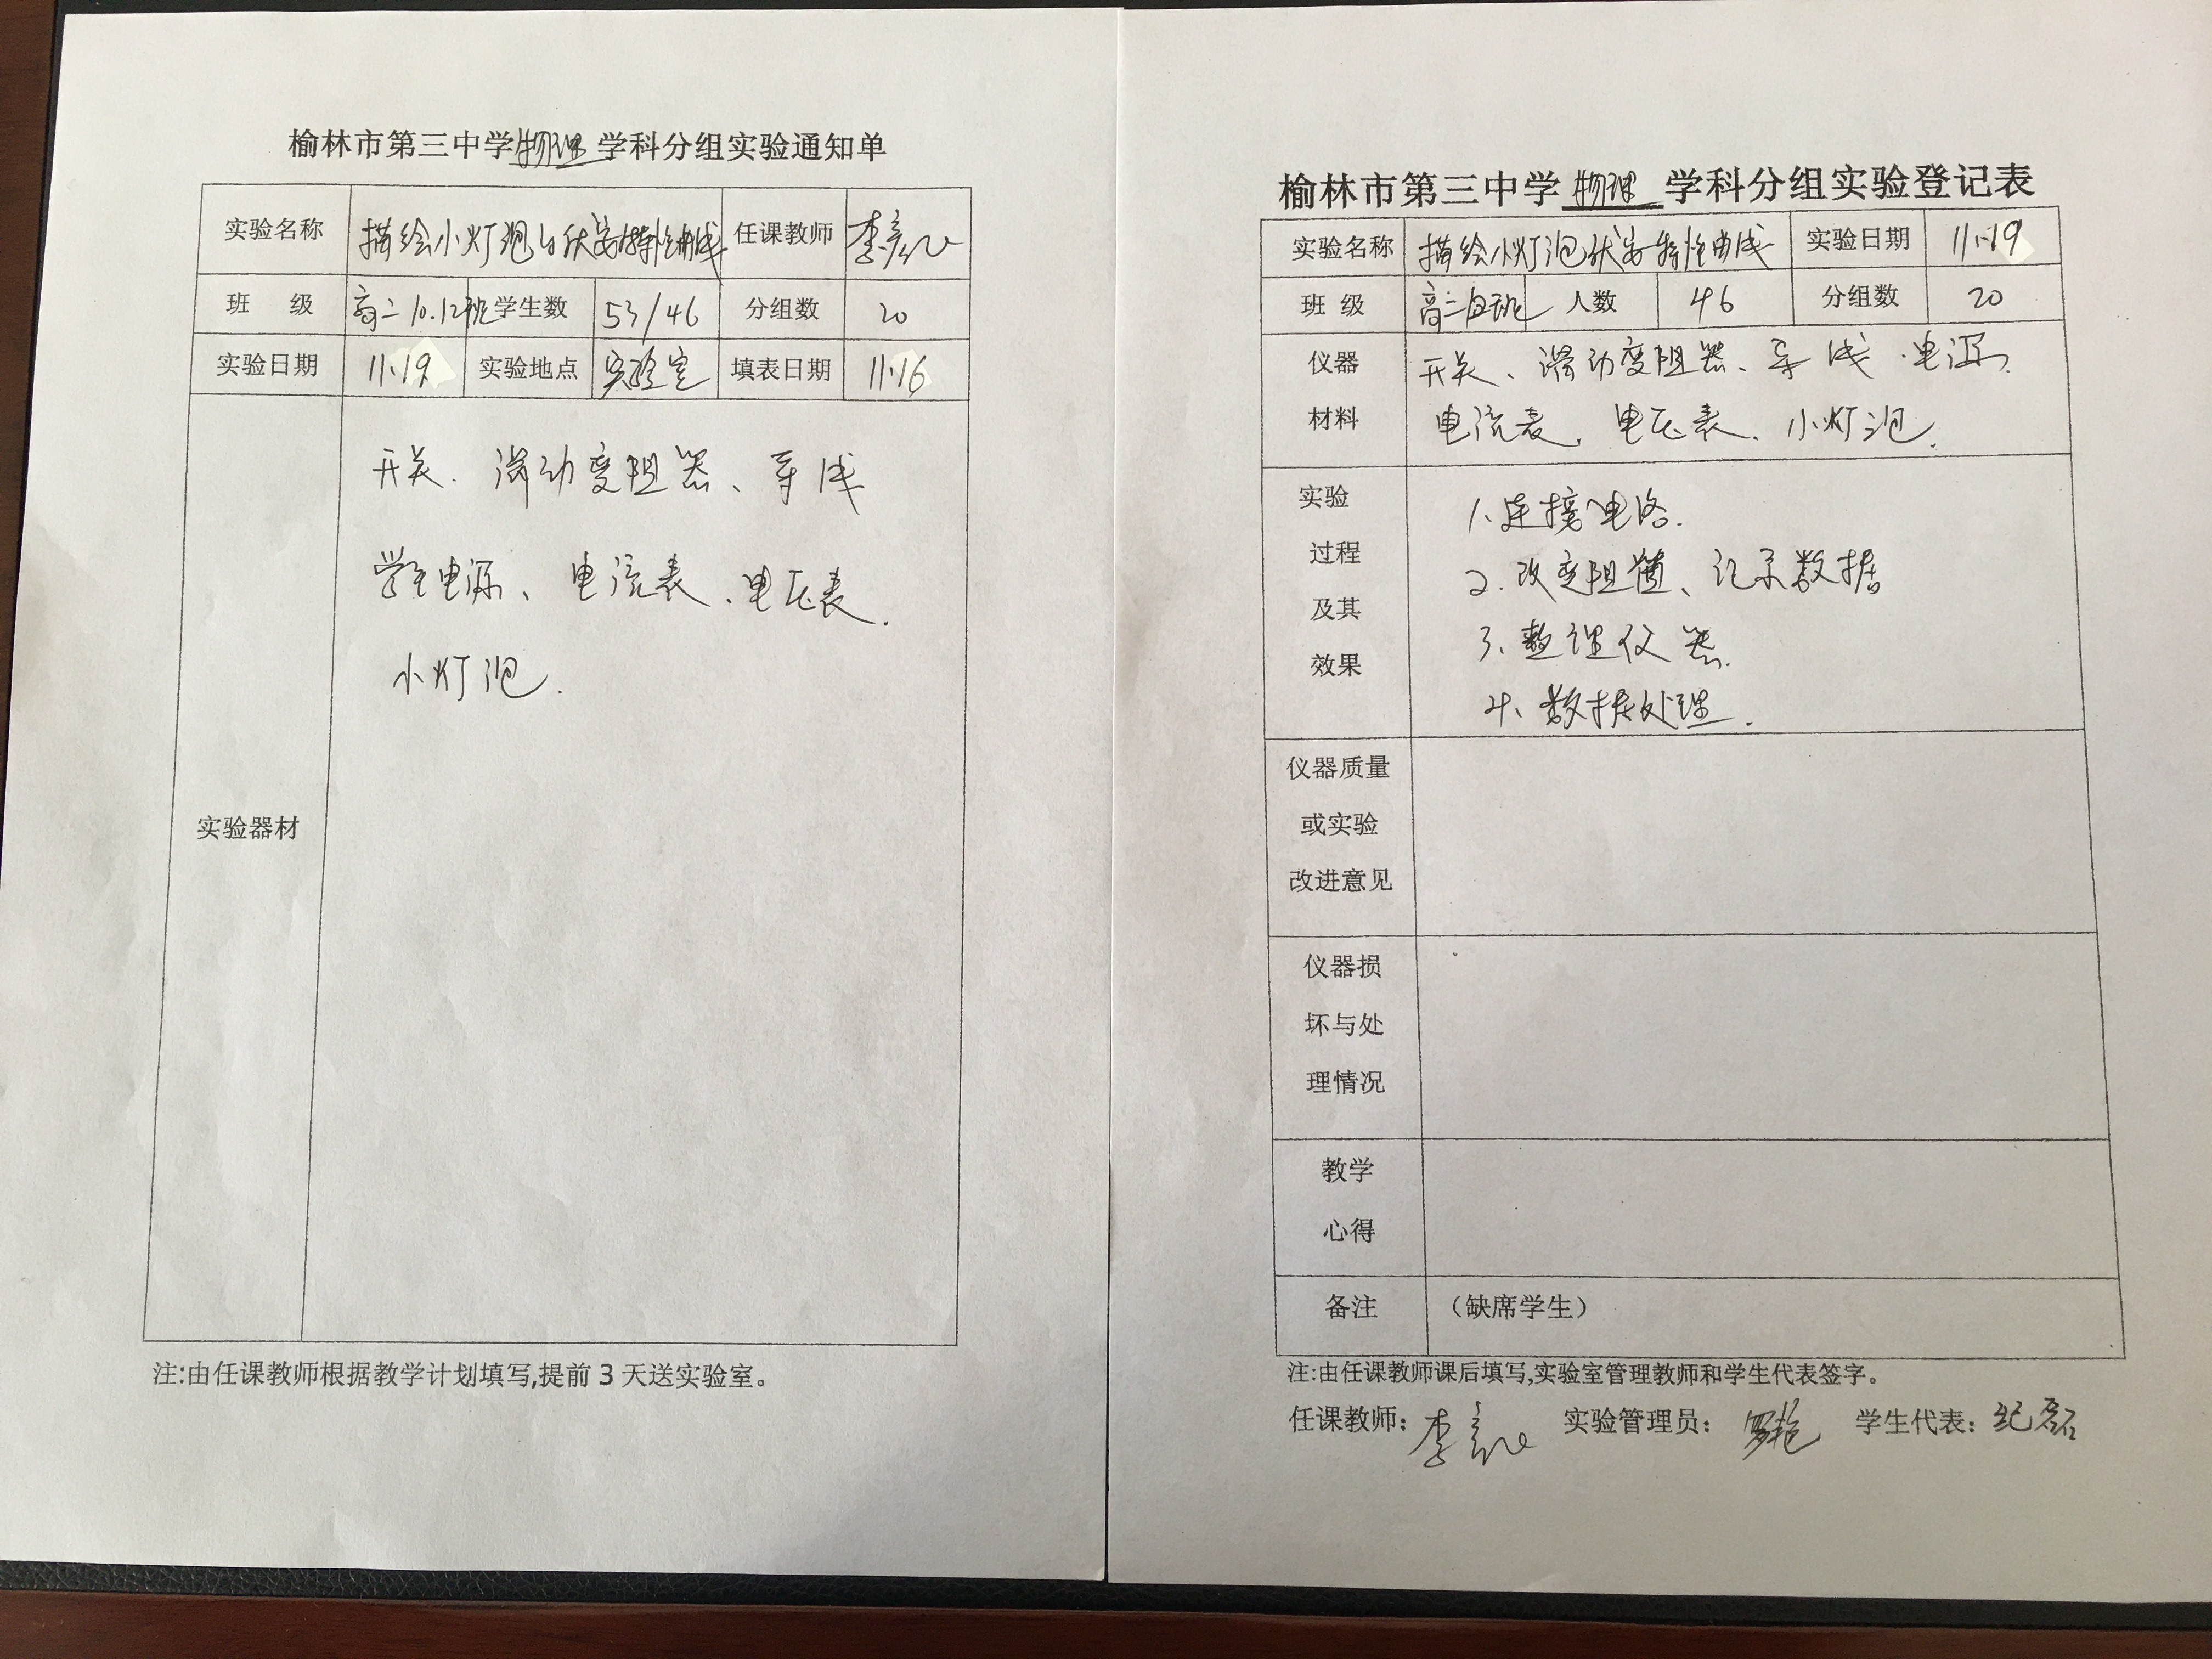 榆林市第三中学物理学科分组实验通知单
实验名称 描绘小灯泡的伏安特性曲线 任课教师 李
班 级 高二10.12班 学生数 53/46 分组数 20
实验日期 11.19 实验地点 实验室 填表日期 11.16
实验器材
开关、滑动变阻器、导线
学生电源、电流表、电压表.
小灯泡.
注:由任课教师根据教学计划填写,提前 3 天送实验室。
榆林市第三中学 物理 学科分组实验登记表
实验名称 描绘小灯泡伏安特性曲线 实验日期 11.19
班 级 高二 班 人数 46 分组数 20
仪器 开关、滑动变阻器、导线、电源、
材料 电流表、电压表、小灯泡.
实验 1、连接电路.
过程 2、改变阻值、记录数据
及其 3、整理仪器.
效果 4、数据处理.
仪器质量
或实验
改进意见
仪器损
坏与处
理情况
教学
心得
备注 （缺席学生）
注:由任课教师课后填写,实验室管理教师和学生代表签字。
任课教师: 李 实验管理员: 罗艳 学生代表: 纪磊